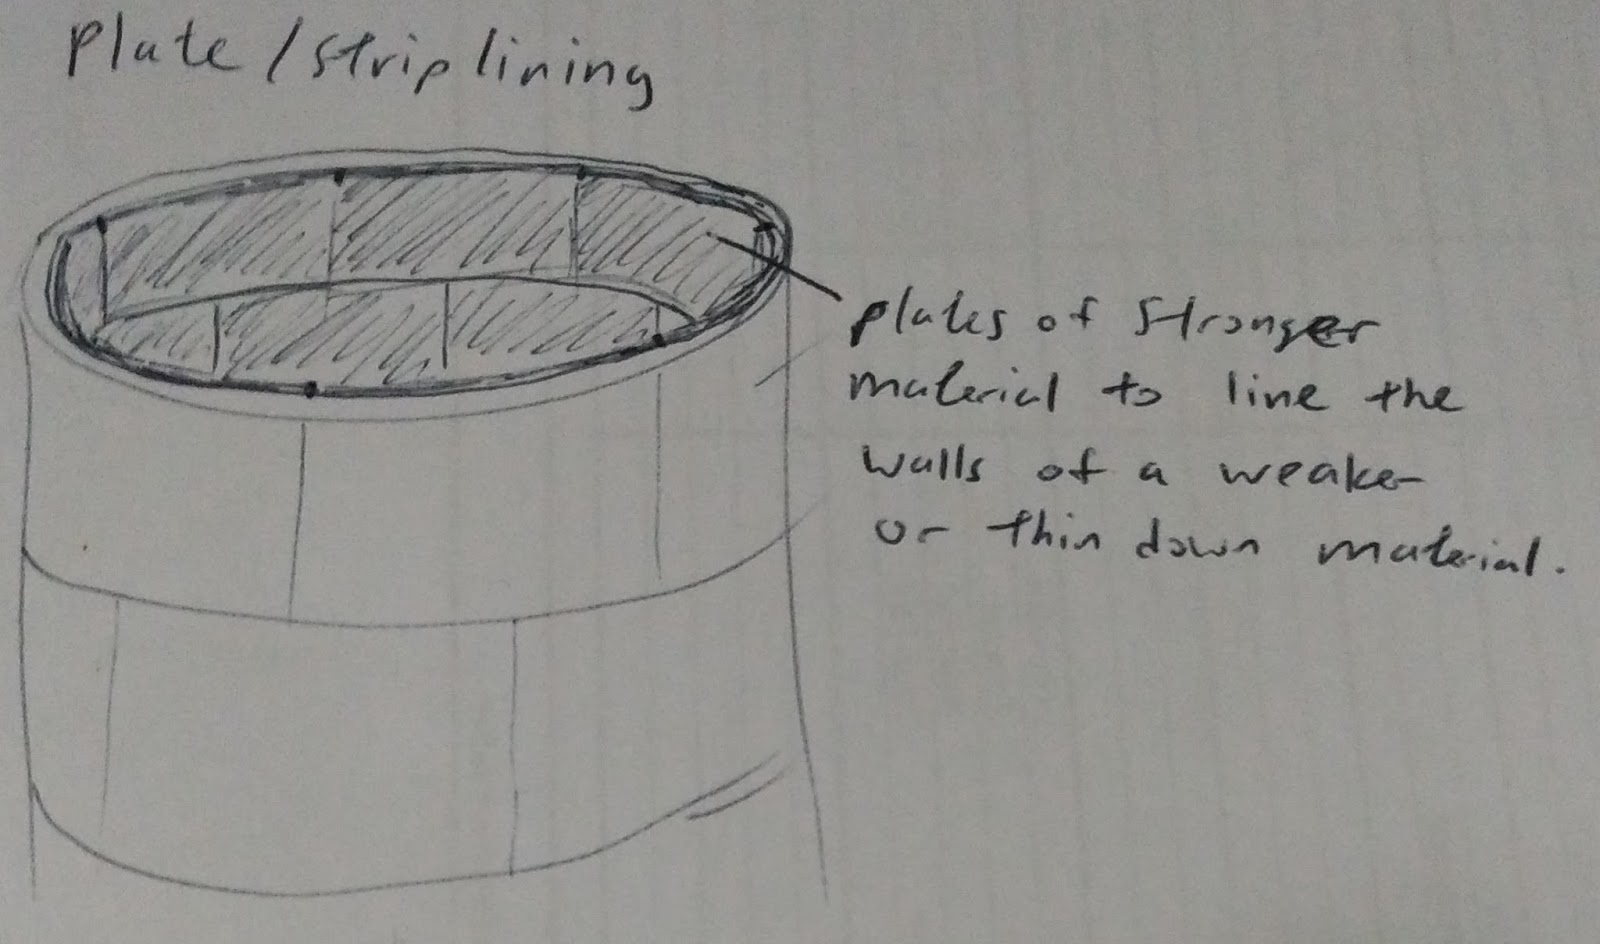 Plate / strip lining
plates of stronger
material to line the
walls of a weaker
or thin down material.